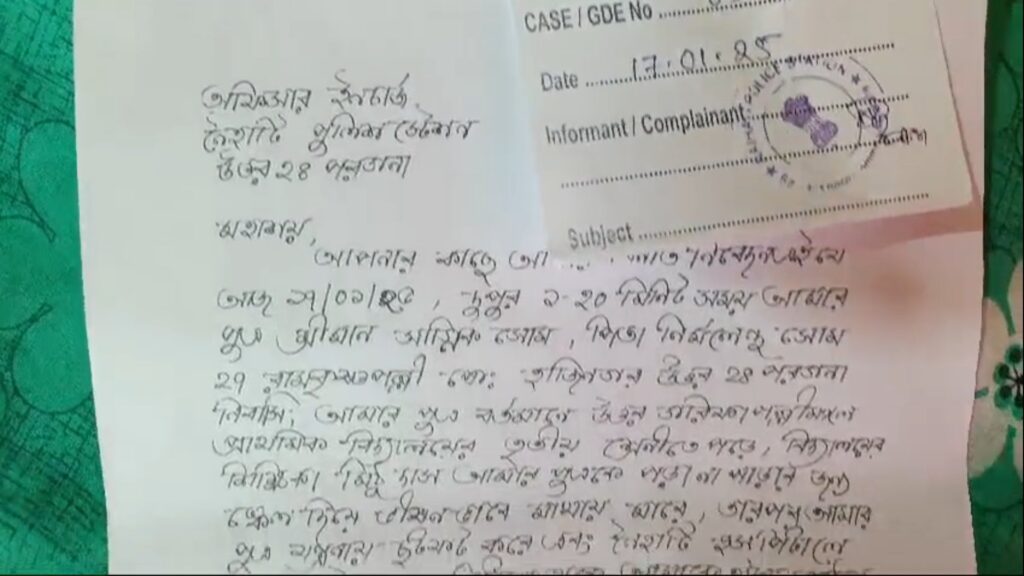 CASE / GDE No
Date 17.01.25
Informant / Complainant
Subject
অফিসার ইনচার্জ,
নৈহাটি পুলিশ স্টেশন
উত্তর ২৪ পরগনা
মহাশয়,
আপনার কাছে আ
আজ ১৭/০১/২৫, দুপুর ১-২০ মিনিট সময় আমার
পুত্র শ্রীমান সোম, পিতা নির্মলেন্দু সোম
২৭ রামকৃষ্ণপল্লী পোঃ উত্তর ২৪ পরগনা
নিবাসী, আমার পুত্র বর্তমানে উত্তর
প্রাথমিক বিদ্যালয়ের তৃতীয় শ্রেনীতে পড়ে, বিদ্যালয়ের
শিক্ষিকা মিঠু দাস আমার পুত্রকে পড়া না পাড়ার জন্য
স্কেল দিয়ে ভীষনভাবে মাথায় মারে, তারপর আমার
পুত্র যন্ত্রনায় ছটফট করে এবং নৈহাটি হসপিটালে